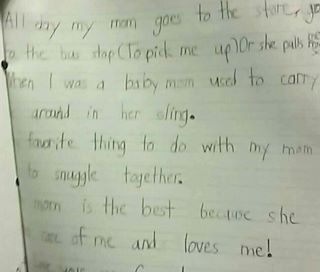 All day my mom goes to the store, go
to the bus stop (To pick me up) Or she pulls
When I was a baby mom used to carry
around in her sling.
favorite thing to do with my mom
to snuggle together.
mom is the best because she
care of me and loves me!